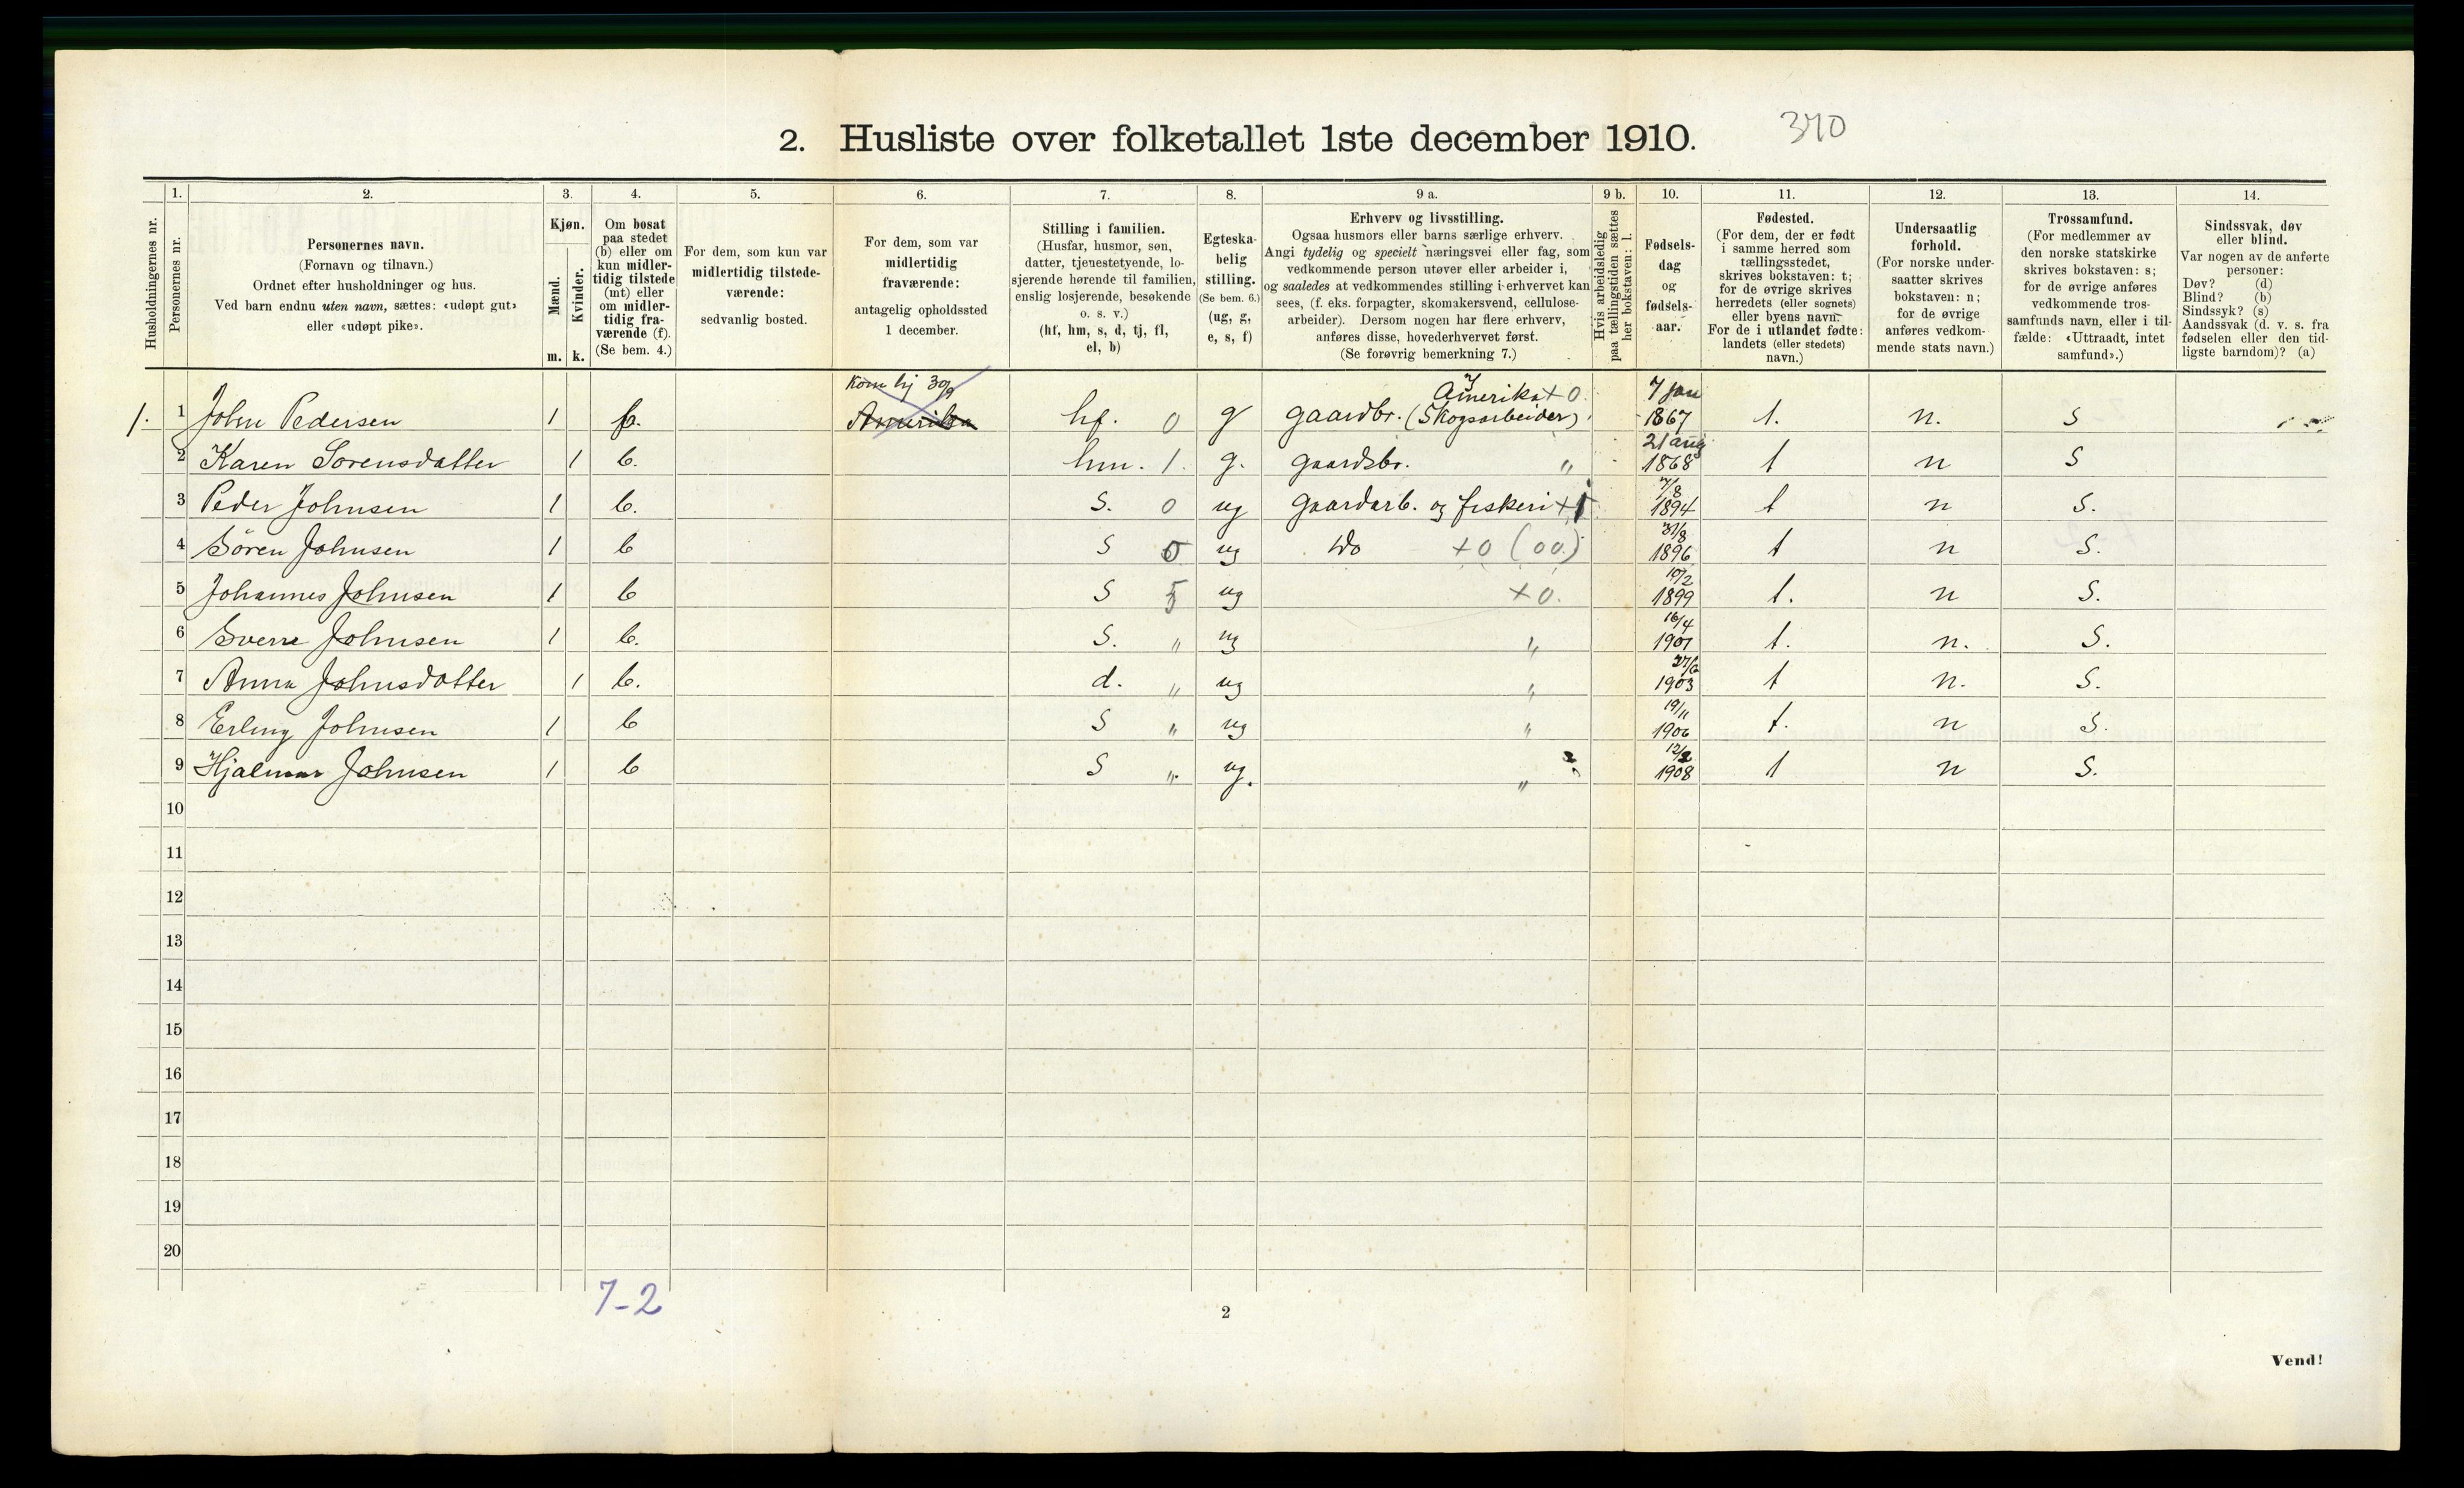 2. Husliste over folketallet 1ste december 1910.
370
Husholdningernes nr.
1.
Personernes nr.
2.
Personernes navn.
(Fornavn og tilnavn.)
Ordnet efter husholdninger og hus.
Ved barn endnu uten navn, sættes: «udøpt gut»
eller «udøpt pike».
3.
Kjøn.
Mænd.
Kvinder.
m. k.
4.
Om bosat
paa stedet
(b) eller om
kun midler-
tidig tilstede
(mt) eller
om midler-
tidig fra-
værende (f).
(Se bem. 4.)
5.
For dem, som kun var
midlertidig tilstede-
værende:
sedvanlig bosted.
6.
For dem, som var
midlertidig
fraværende:
antagelig opholdssted
1 december.
7.
Stilling i familien.
(Husfar, husmor, søn,
datter, tjenestetyende, lo-
sjerende hørende til familien,
enslig losjerende, besøkende
o. s. v.)
(hf, hm, s, d, tj, fl,
el, b)
8.
Egteska-
belig
stilling.
(Se bem. 6.)
(ug, g,
e, s, f)
9 a.
Erhverv og livsstilling.
Ogsaa husmors eller barns særlige erhverv.
Angi tydelig og specielt næringsvei eller fag, som
vedkommende person utøver eller arbeider i,
og saaledes at vedkommendes stilling i erhvervet kan
sees, (f. eks. forpagter, skomakersvend, cellulose-
arbeider). Dersom nogen har flere erhverv,
anføres disse, hovederhvervet først.
(Se forøvrig bemerkning 7.)
9 b.
Hvis arbeidsledig
paa tællingstiden sættes
her bokstaven: l.
10.
Fødsels-
dag
og
fødsels-
aar.
11.
Fødested.
(For dem, der er født
i samme herred som
tællingsstedet,
skrives bokstaven: t;
for de øvrige skrives
herredets (eller sognets)
eller byens navn.
For de i utlandet fødte:
landets (eller stedets)
navn.)
12.
Undersaatlig
forhold.
(For norske under-
saatter skrives
bokstaven: n;
for de øvrige
anføres vedkom-
mende stats navn.)
13.
Trossamfund.
(For medlemmer av
den norske statskirke
skrives bokstaven: s;
for de øvrige anføres
vedkommende tros-
samfunds navn, eller i til-
fælde: «Uttraadt, intet
samfund».)
14.
Sindssvak, døv
eller blind.
Var nogen av de anførte
personer:
Døv? (d)
Blind? (b)
Sindssyk? (s)
Aandssvak (d. v. s. fra
fødselen eller den tid-
ligste barndom)? (a)
Kom hj 30/9 Amerika +0. 7 jan
1. 1 John Pedersen 1 Amerika hf. 0 g gaardbr. (Skogsarbeider) 1867 t. n. S
21 aug
2 Karen Sorensdatter 1 b. hm. 1. g. gaardsbr. " 1868 t n S
7/8
3 Peder Johnsen 1 b. S. 0 ug Gaardarb. og fiskeri +1 1894 t n S.
31/8
4 Sören Johnsen 1 b S 0 ug do +0 (00.) 1896 t n S.
10/2
5 Johannes Johnsen 1 b S 5 ug +0. 1899 t. n S.
16/4
6 Sverre Johnsen 1 b. S. " ug " 1901 t. n. S.
27/6
7 Anna Johnsdatter 1 b. d. " ug " 1903 t n. S.
19/11
8 Erling Johnsen 1 b S " ug " 1906 t. n S.
12/2
9 Hjalmar Johnsen 1 b S " ug. " 1908 t n S.
10
11
12
13
14
15
16
17
18
19
20
7-2
2
Vend!